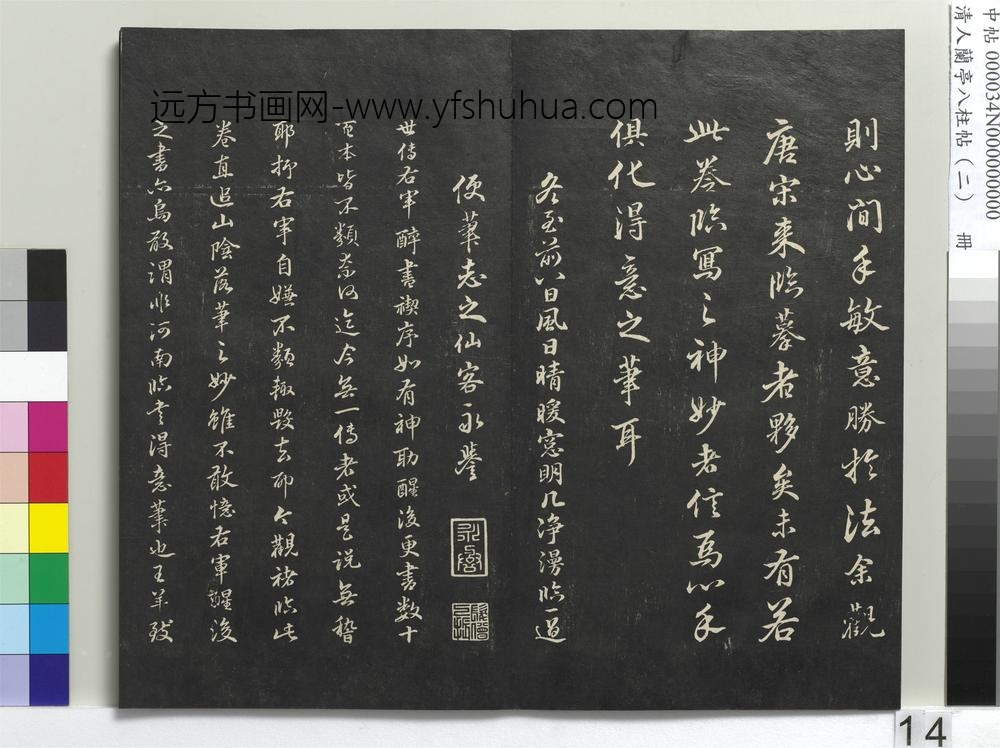 則心閒手敏意勝於法余觀
唐宋來臨摹者夥矣未有若
此卷臨寫之神妙者信焉心手
俱化得意之筆耳
冬至前八日風日晴暖窓明几净漫臨一過
便筆志之仙客永譽
永譽
世傳右軍醉書禊序如有神助醒後更書数十
百本皆不類奈何迄今無一傳者或是说無稽
耶抑右軍自嫌不類輒毀去耶今觀褚臨此
卷直追山陰落筆之妙雖不敢憶右軍醒後
之書亦烏敢謂非河南臨書得意筆也王羊致
远方书画网-www.yfshuhua.com
中帖 000034N000000000
清人蘭亭八柱帖（二） 冊
14